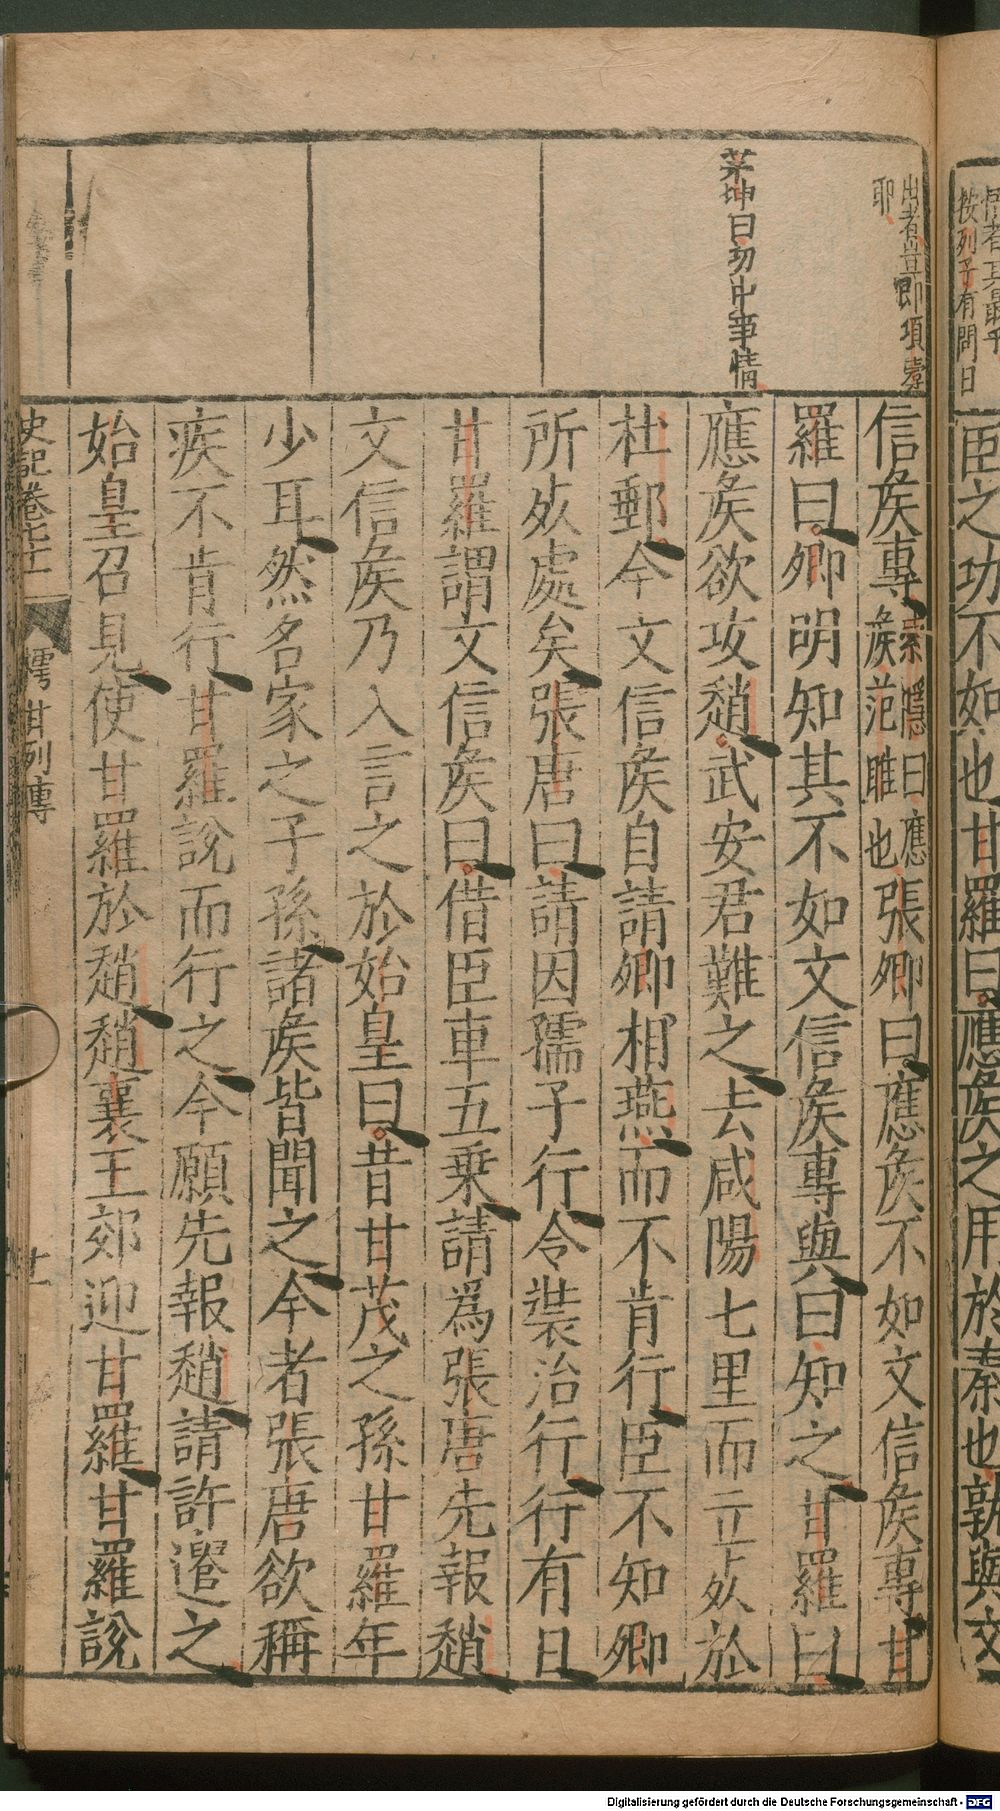 情者其最乎
按列子有問日
臣之功不如也甘羅曰應矦之用於秦也孰與文
出者豈即項橐
耶
茅坤曰切中事情
信矦專
索隱曰應
矦范睢也
張卿曰應矦不如文信矦專甘
羅曰卿明知其不如文信矦專與曰知之甘羅曰
應矦欲攻趙武安君難之去咸陽七里而立死於
杜郵今文信矦自請卿相燕而不肯行臣不知卿
所死處矣張唐曰請因孺子行令裝治行行有日
甘羅謂文信矦曰借臣車五乗請爲張唐先報趙
文信矦乃入言之於始皇曰昔甘茂之孫甘羅年
少耳然名家之子孫諸矦皆聞之今者張唐欲稱
疾不肯行甘羅說而行之今願先報趙請許遣之
始皇召見使甘羅於趙趙襄王郊迎甘羅甘羅說
史記卷七十一 樗甘列傳 廿
Digitalisierung gefördert durch die Deutsche Forschungsgemeinschaft - DFG